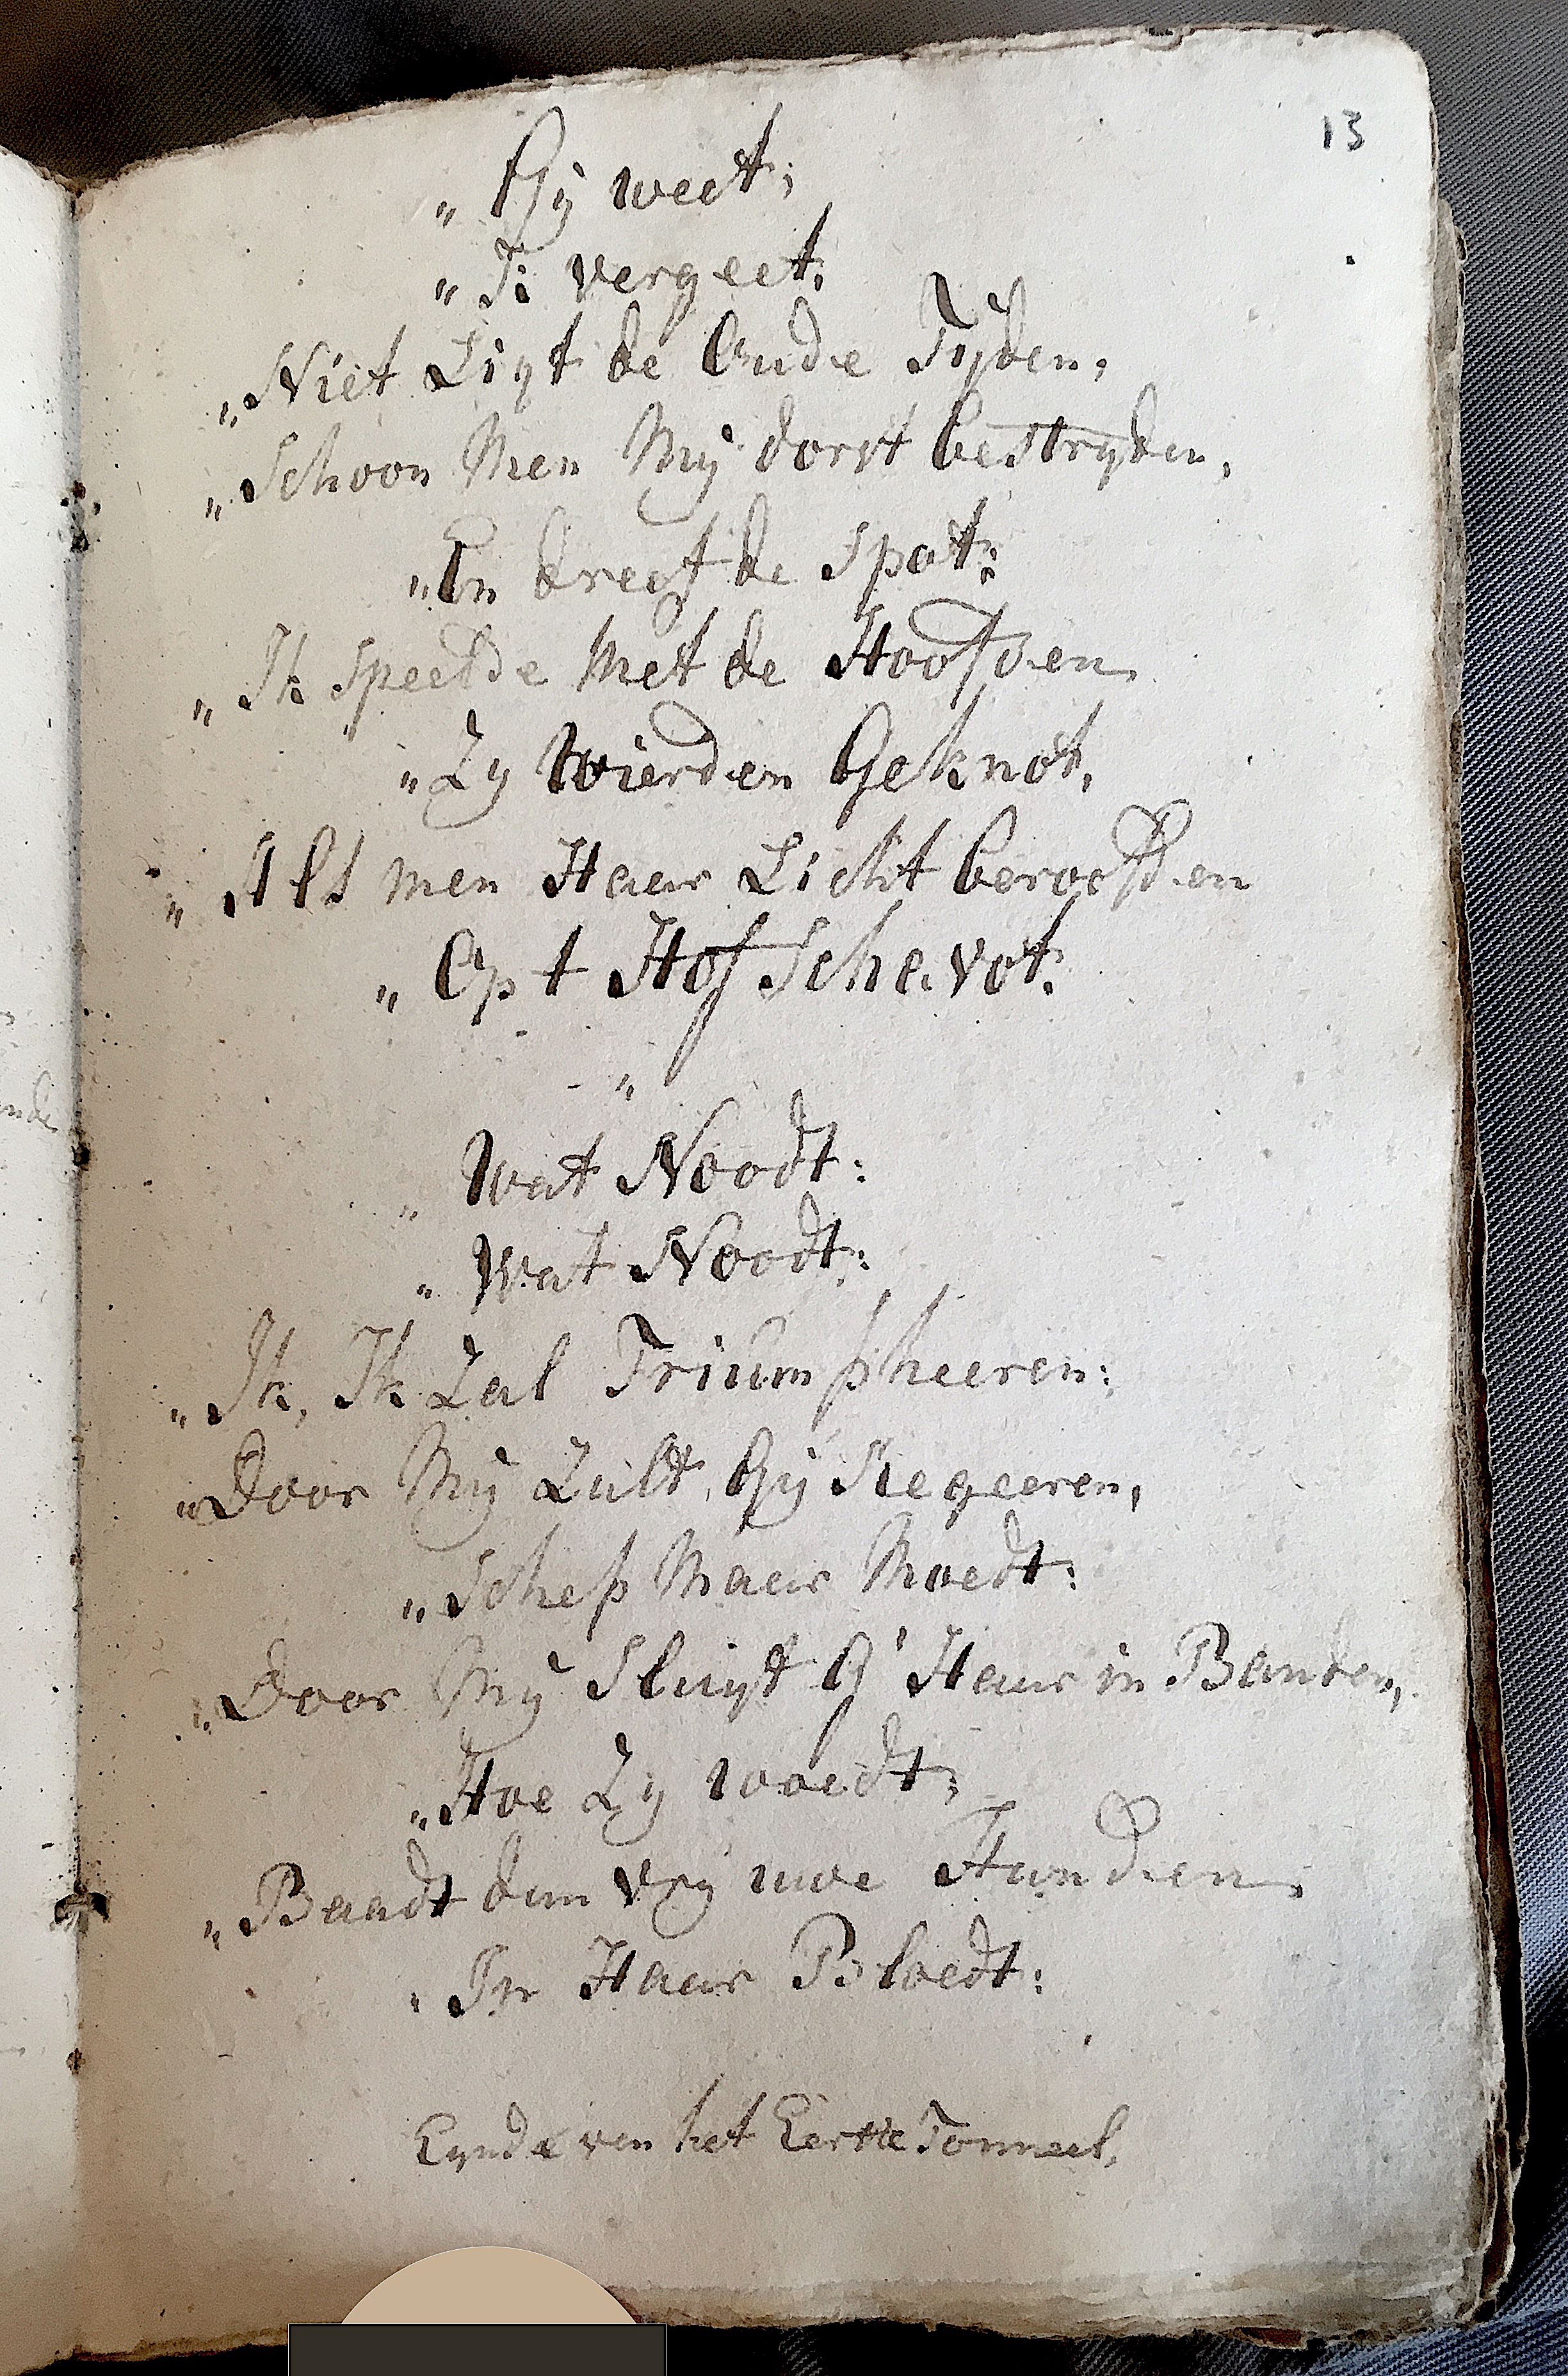 13
„ Gÿ weet;
„ Ji vergeet;
„ Niet Ligt de Oude Tÿden,
„ Schoon Men Mÿ dorst bestryden,
„ En dreef de Spot;
„ Ik Speelde Met de Hoofden
„ Zy Wierden Geknot,
„ Als men Haar Licht beroofden
„ Op t Hof Schavot:
„
„ Wat Noodt:
„ Wat Noodt:
„ Ik, Ik Zal Triumpheeren:
„ Door Mÿ Zult, Gÿ Regeeren,
„ Schep Maar Moedt:
„ Door Mÿ Sluyt G' Haar in Banden,
„ Hoe Zy woedt;
„ Baadt dan vry uwe Handen
„ In Haar Bloedt:
Eynde van het Eerste Tonneel,